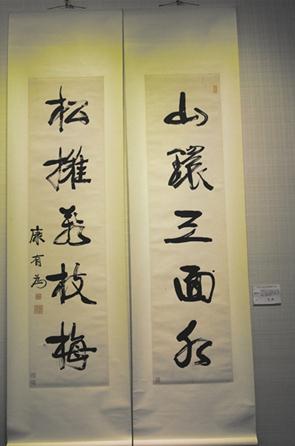 山環三面水
松擁幾枝梅
康有為